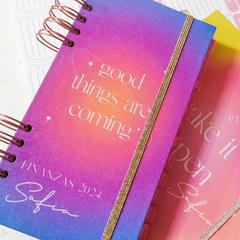 good
things are
coming
FINANZAS 2024
Sofia
ke it
pen
Sofia